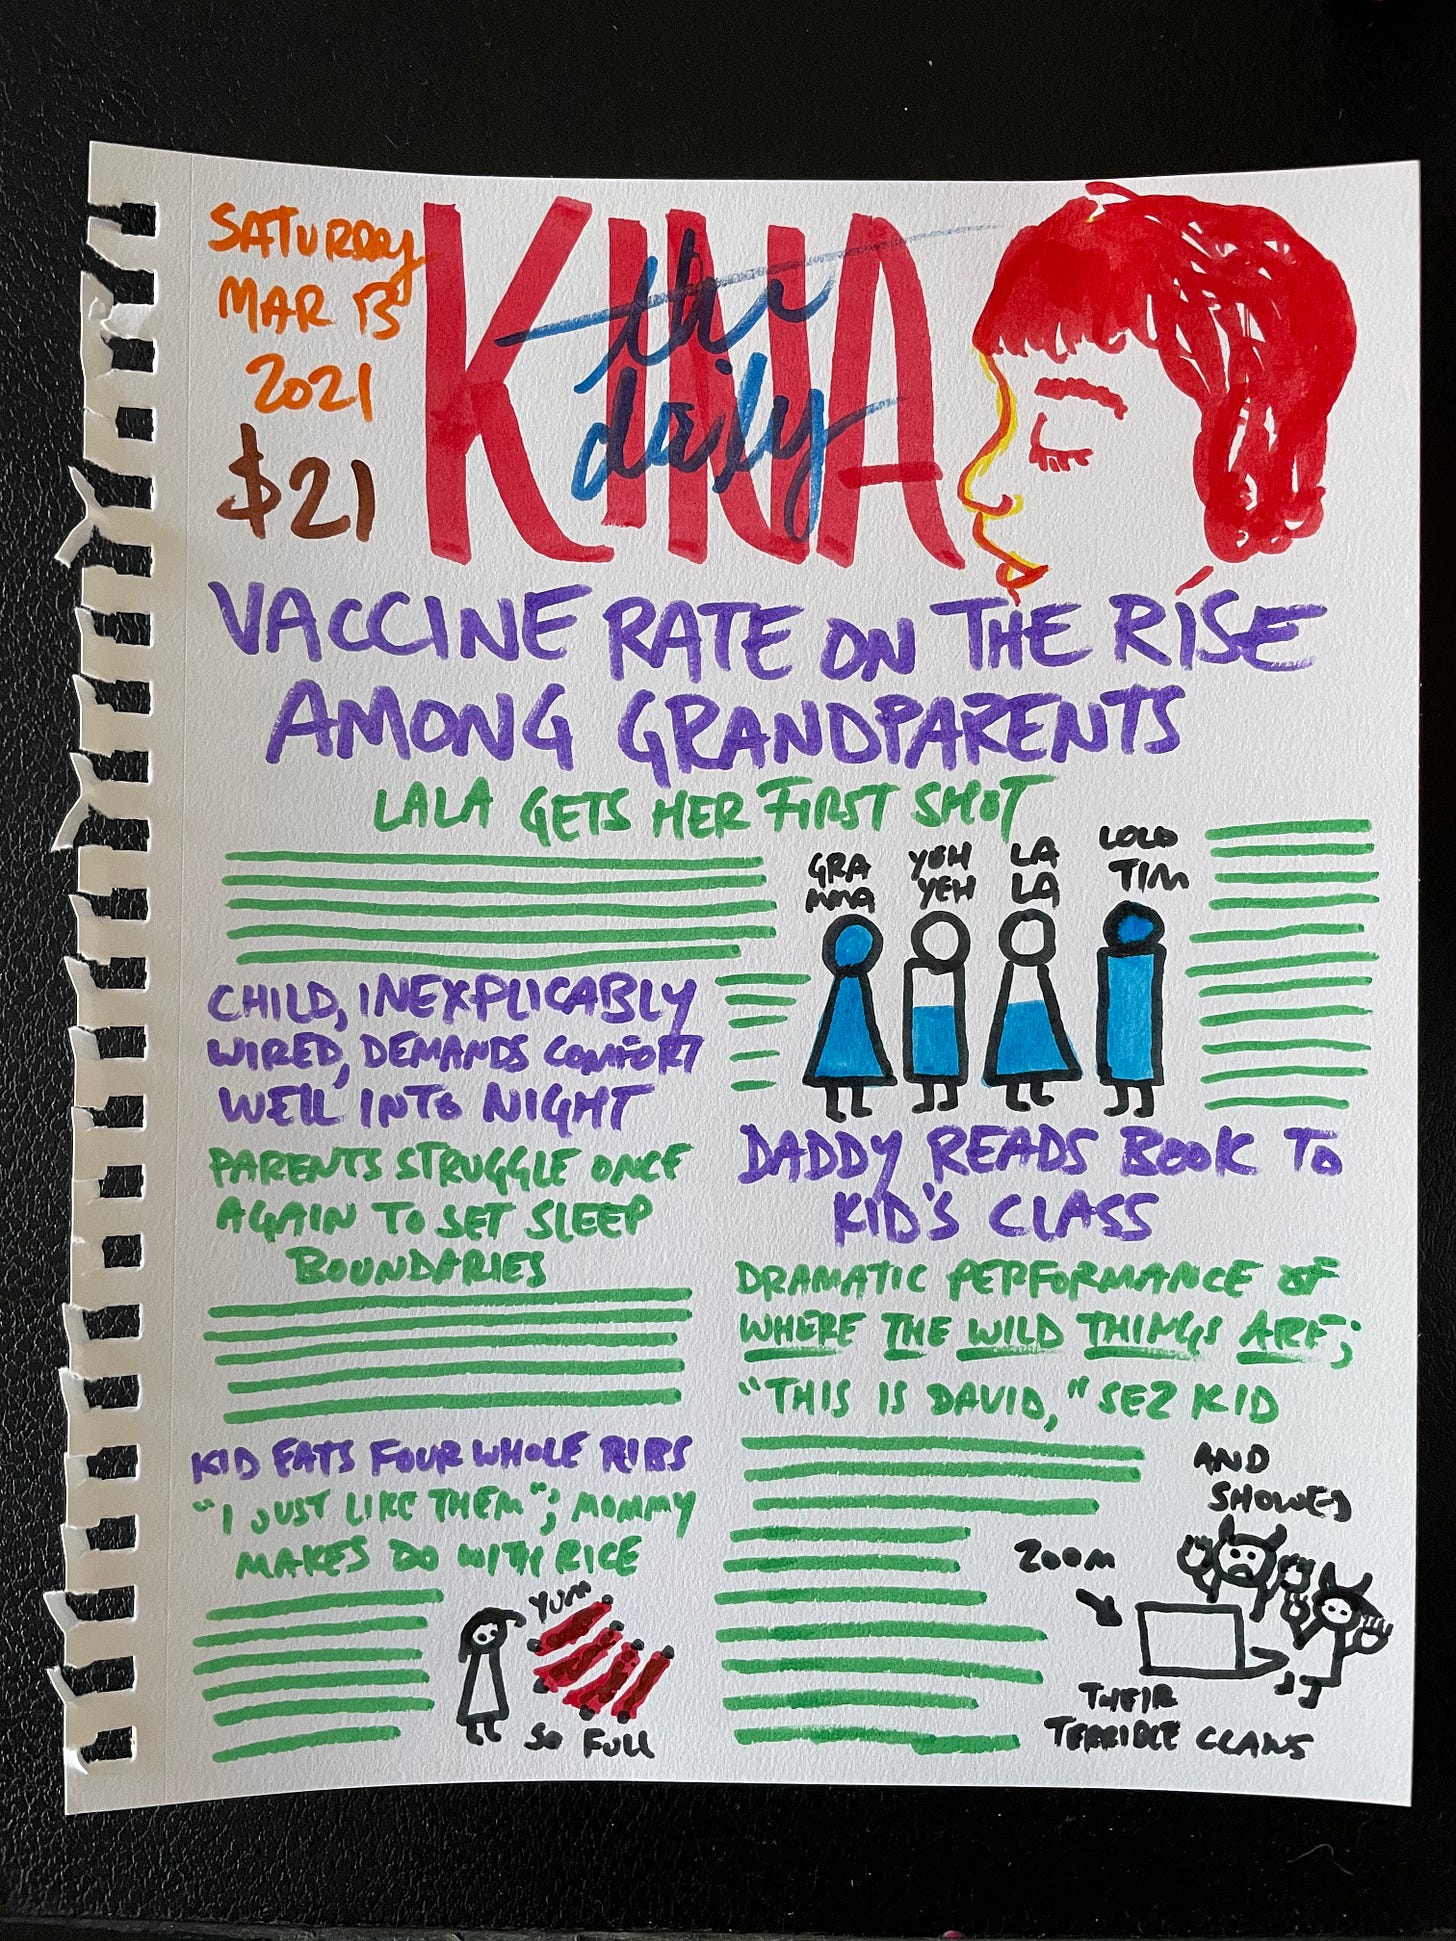 SATURDAY
MAR 13
2021
$21
the
daily
KINA
VACCINE RATE ON THE RISE
AMONG GRANDPARENTS
LALA GETS HER FIRST SHOT
GRA
MMA
YEH
YEH
LA
LA
LOLO
TIM
CHILD, INEXPLICABLY
WIRED, DEMANDS COMFORT
WELL INTO NIGHT
PARENTS STRUGGLE ONCE
AGAIN TO SET SLEEP
BOUNDARIES
KID EATS FOUR WHOLE RIBS
"I JUST LIKE THEM"; MOMMY
MAKES DO WITH RICE
YUM
SO FULL
DADDY READS BOOK TO
KID'S CLASS
DRAMATIC PERFORMANCE OF
WHERE THE WILD THINGS ARE;
"THIS IS DAVID," SEZ KID
AND
SHOWED
ZOOM
THEIR
TERRIBLE CLAWS